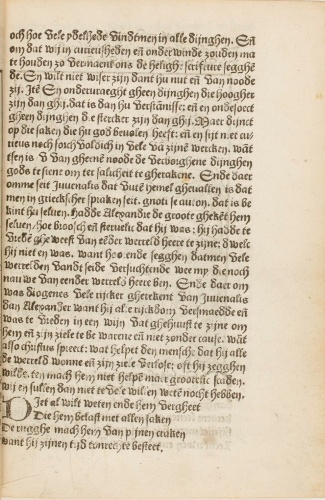 och hoe vele ydelhede vindtmen in alle dinghen. En
om dat wij in curieusheden en onderwinde zouden ma
te houden zo vermaent ons de heligh scrifture segghe
de. En wilt niet wiser zijn dant hu nut en van noode
zij. Ite En ondervraeght gheen dijnghen die hoogher
zijn dan ghij. dat is dan hu verstanisse: en en ondesoect
gheen dijnghen die stercker zijn dan ghij. Maer dijnct
op die saken die hu god bevolen heeft: en en sijt niet cu
rieus noch sorchvoldich in vele va zijne wercken. want
tsen is van gheene noode de verborghene dijnghen
gods te siene om ter salicheit te gherakene. Ende daer
omme seit Juvenalis dat vute hemel ghevallen is dat
men in griekscher spraken seit. gnoti se auton. dat is be
kint hu selven. hadde Alexander de groote ghekent hem
selven hoe broosch en stervelic dat hij was: hij hadde te
vrede gheweest van eeder werreld heere te zijne: dwelc
hij niet en was. want hoorende segghen datmen vele
werrelden vandt seide versuchtende wee my die noch
nau we van eender werreld heere ben. Ende daer om
was diogenes vele rijker gherekent van Juvenalis
dan Alexander want hij al erijckdom versmaedde en
was te vreden in een wijn vat ghehuust te zijne om
hem en zijn ziele te bewarene en niet zonder cause. want
also christus spreect: wat helpet den mensche dat hij alle
de werreld wonne en zijn ziele verlose: oft hij zegghen
wilde. ten mach hem niet helpe maer grootelic scaden.
wij en sullen dan niet te vele willen wete nocht hebben.
Diet al wilt weten ende hem vergheet
Die hem belast met allen saken
De rugghe mach hem van pijnen craken
want hij zijnen tijd tonrechte besteet.